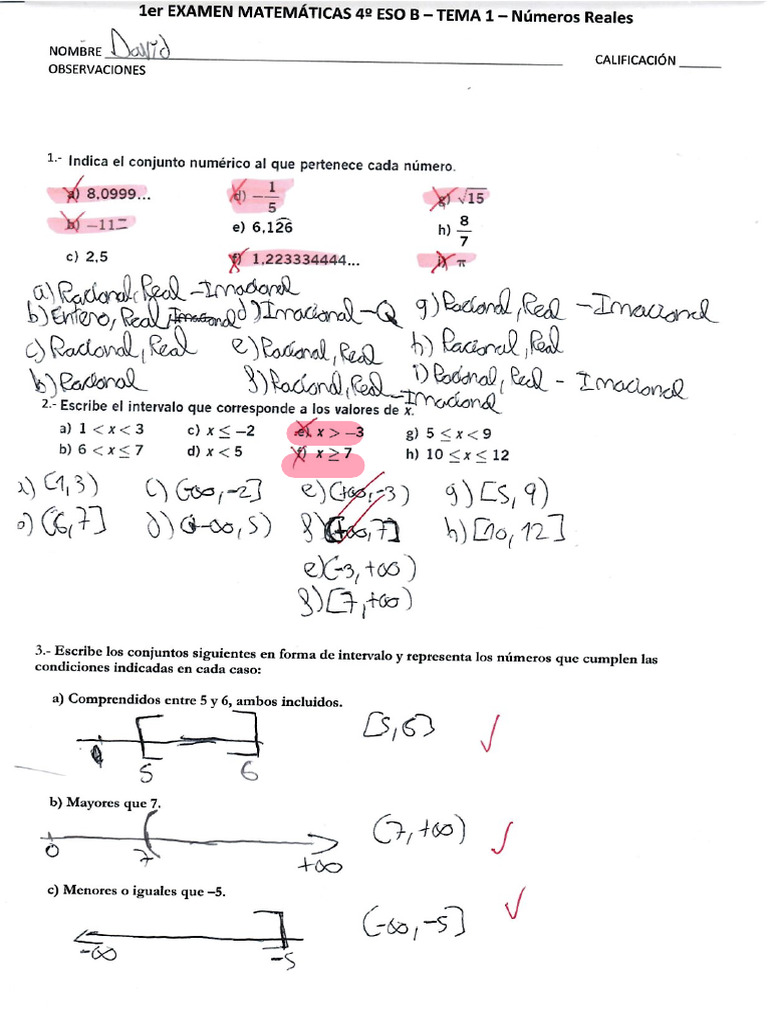 1er EXAMEN MATEMÁTICAS 4º ESO B – TEMA 1 – Números Reales
NOMBRE David CALIFICACIÓN
OBSERVACIONES
1.- Indica el conjunto numérico al que pertenece cada número.
a) 8,0999... d) −1/5 g) √15
b) −11 e) 6,1͡26 h) 8/7
c) 2,5 f) 1,223334444... i) π
a) Racional, Real – Irracional d) Irracional – Q g) Racional, Real – Irracional
b) Entero, Real, Irracional
c) Racional, Real e) Racional, Real h) Racional, Real
b) Racional f) Racional, Real – Irracional i) Racional, Real – Irracional
2.- Escribe el intervalo que corresponde a los valores de x.
a) 1 < x < 3 c) x ≤ −2 e) x > −3 g) 5 ≤ x < 9
b) 6 < x ≤ 7 d) x < 5 f) x ≥ 7 h) 10 ≤ x ≤ 12
a) (1,3) c) (-∞,-2] e) (+∞,-3) g) [5,9)
b) (6,7] d) (-∞,5) f) (+∞,7] h) [10,12]
e) (-3,+∞)
f) [7,+∞)
3.- Escribe los conjuntos siguientes en forma de intervalo y representa los números que cumplen las
condiciones indicadas en cada caso:
a) Comprendidos entre 5 y 6, ambos incluidos.
[5,6]
5 6
b) Mayores que 7.
(7,+∞)
0 7 +∞
c) Menores o iguales que –5.
(-∞,-5]
-∞ -5